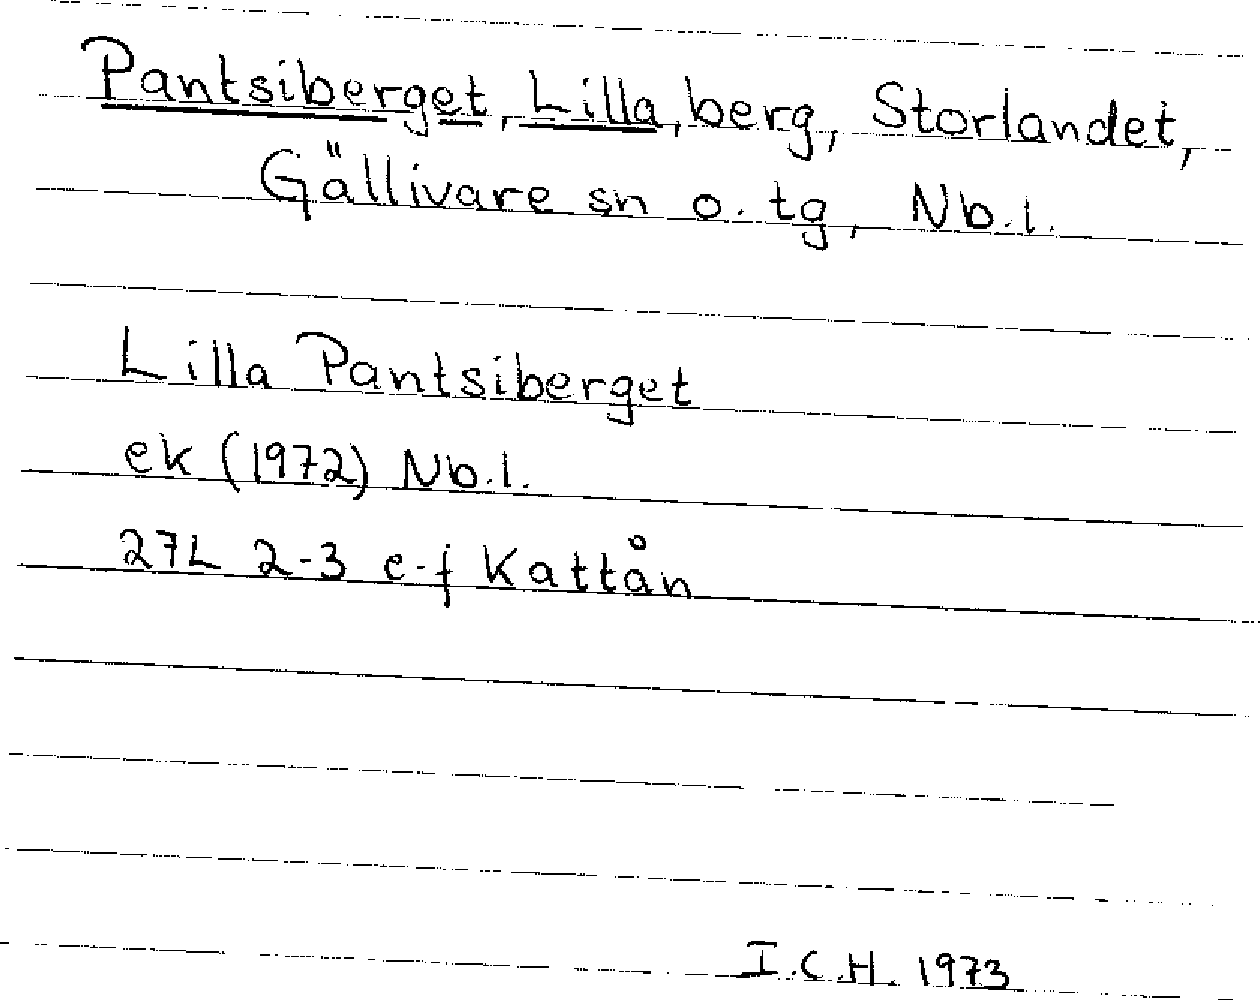 Pantsiberget, Lilla, berg, Storlandet,
Gällivare sn o. tg, Nb.l.
Lilla Pantsiberget
ek (1972) Nb.l.
27L 2-3 e-f Kattån
I.C.H. 1973